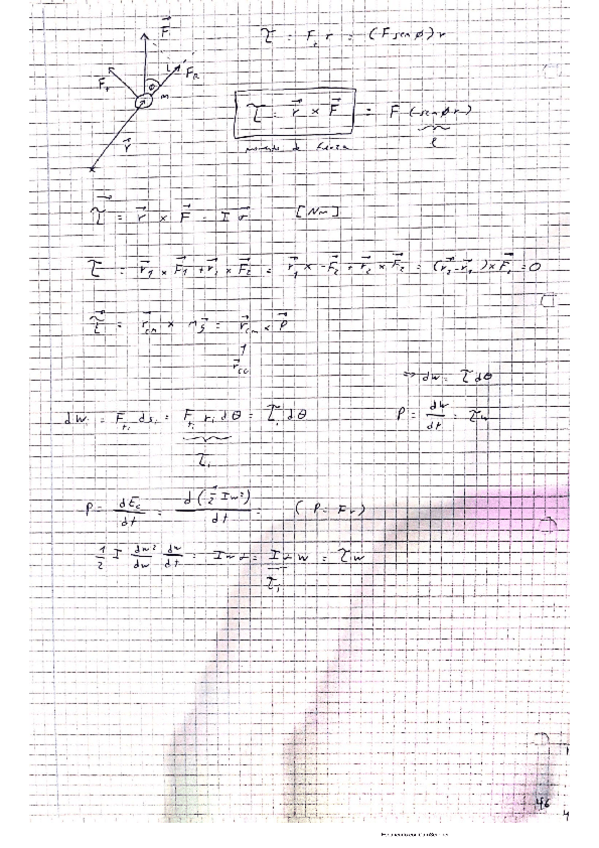 F⃗
τ = F_t r = (F sen ϕ) r
F_t ϕ F_R
m
r⃗
τ⃗ = r⃗ × F⃗ = F (sen ϕ r)
momento de fuerza l
τ⃗ = r⃗ × F⃗ = I α⃗ [Nm]
τ = r⃗₁ × F⃗₁ + r⃗₂ × F⃗₂ = r⃗₁ × -F⃗₂ + r⃗₂ × F⃗₂ = (r⃗₂ - r⃗₁) × F⃗₂ = 0
τ⃗ = r⃗_cm × m g⃗ = r⃗_cm × P⃗
r⃗_CG
⇒ dw = τ dθ
dwᵢ = F_tᵢ dsᵢ = F_tᵢ rᵢ dθ = τᵢ dθ
P = dw/dt = τ w
τᵢ
P = dE_c/dt = d(½ I w²)/dt = (P = Fv)
½ I dw²/dw dw/dt = I w α = I α w = τ w
τᵢ
46